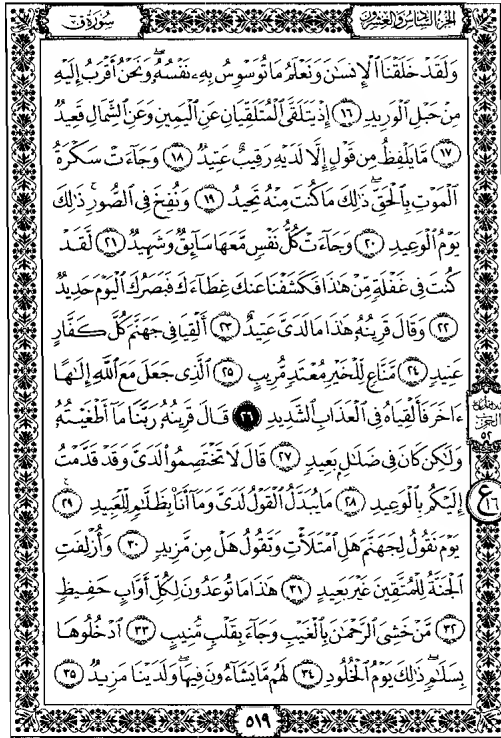 الجزء السادس والعشرون
سورة ق
وَلَقَدْ خَلَقْنَا ٱلْإِنسَـٰنَ وَنَعْلَمُ مَا تُوَسْوِسُ بِهِۦ نَفْسُهُۥ ۖ وَنَحْنُ أَقْرَبُ إِلَيْهِ
مِنْ حَبْلِ ٱلْوَرِيدِ ١٦ إِذْ يَتَلَقَّى ٱلْمُتَلَقِّيَانِ عَنِ ٱلْيَمِينِ وَعَنِ ٱلشِّمَالِ قَعِيدٌ
١٧ مَّا يَلْفِظُ مِن قَوْلٍ إِلَّا لَدَيْهِ رَقِيبٌ عَتِيدٌ ١٨ وَجَآءَتْ سَكْرَةُ
ٱلْمَوْتِ بِٱلْحَقِّ ۖ ذَٰلِكَ مَا كُنتَ مِنْهُ تَحِيدُ ١٩ وَنُفِخَ فِى ٱلصُّورِ ۚ ذَٰلِكَ
يَوْمُ ٱلْوَعِيدِ ٢٠ وَجَآءَتْ كُلُّ نَفْسٍ مَّعَهَا سَآئِقٌ وَشَهِيدٌ ٢١ لَّقَدْ
كُنتَ فِى غَفْلَةٍ مِّنْ هَـٰذَا فَكَشَفْنَا عَنكَ غِطَآءَكَ فَبَصَرُكَ ٱلْيَوْمَ حَدِيدٌ
٢٢ وَقَالَ قَرِينُهُۥ هَـٰذَا مَا لَدَىَّ عَتِيدٌ ٢٣ أَلْقِيَا فِى جَهَنَّمَ كُلَّ كَفَّارٍ
عَنِيدٍ ٢٤ مَّنَّاعٍ لِّلْخَيْرِ مُعْتَدٍ مُّرِيبٍ ٢٥ ٱلَّذِى جَعَلَ مَعَ ٱللَّهِ إِلَـٰهًا
ءَاخَرَ فَأَلْقِيَاهُ فِى ٱلْعَذَابِ ٱلشَّدِيدِ ٢٦ قَالَ قَرِينُهُۥ رَبَّنَا مَآ أَطْغَيْتُهُۥ
وَلَـٰكِن كَانَ فِى ضَلَـٰلٍۭ بَعِيدٍ ٢٧ قَالَ لَا تَخْتَصِمُوا۟ لَدَىَّ وَقَدْ قَدَّمْتُ
إِلَيْكُم بِٱلْوَعِيدِ ٢٨ مَا يُبَدَّلُ ٱلْقَوْلُ لَدَىَّ وَمَآ أَنَا۠ بِظَلَّـٰمٍ لِّلْعَبِيدِ ٢٩
يَوْمَ نَقُولُ لِجَهَنَّمَ هَلِ ٱمْتَلَأْتِ وَتَقُولُ هَلْ مِن مَّزِيدٍ ٣٠ وَأُزْلِفَتِ
ٱلْجَنَّةُ لِلْمُتَّقِينَ غَيْرَ بَعِيدٍ ٣١ هَـٰذَا مَا تُوعَدُونَ لِكُلِّ أَوَّابٍ حَفِيظٍ
٣٢ مَّنْ خَشِىَ ٱلرَّحْمَـٰنَ بِٱلْغَيْبِ وَجَآءَ بِقَلْبٍ مُّنِيبٍ ٣٣ ٱدْخُلُوهَا
بِسَلَـٰمٍ ۖ ذَٰلِكَ يَوْمُ ٱلْخُلُودِ ٣٤ لَهُم مَّا يَشَآءُونَ فِيهَا وَلَدَيْنَا مَزِيدٌ ٣٥
٥١٩